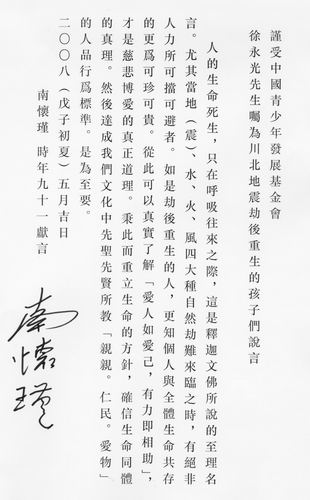 謹受中國青少年發展基金會
徐永光先生囑為川北地震劫後重生的孩子們說言
人的生命死生，只在呼吸往來之際，這是釋迦文佛所說的至理名
言。尤其當地（震）、水、火、風四大種自然劫難來臨之時，有絕非
人力所可擋可避者。如是劫後重生的人，更知個人與全體生命共存
的更為可珍可貴。從此可以真實了解「愛人如愛己，有力即相助」，
才是慈悲博愛的真正道理。秉此而重立生命的方針，確信生命同體
的真理。然後達成我們文化中先聖先賢所教「親親。仁民。愛物」
的人品行爲標準。是為至要。
二〇〇八（戊子初夏）五月吉日
南懷瑾　時年九十一獻言
南懷瑾